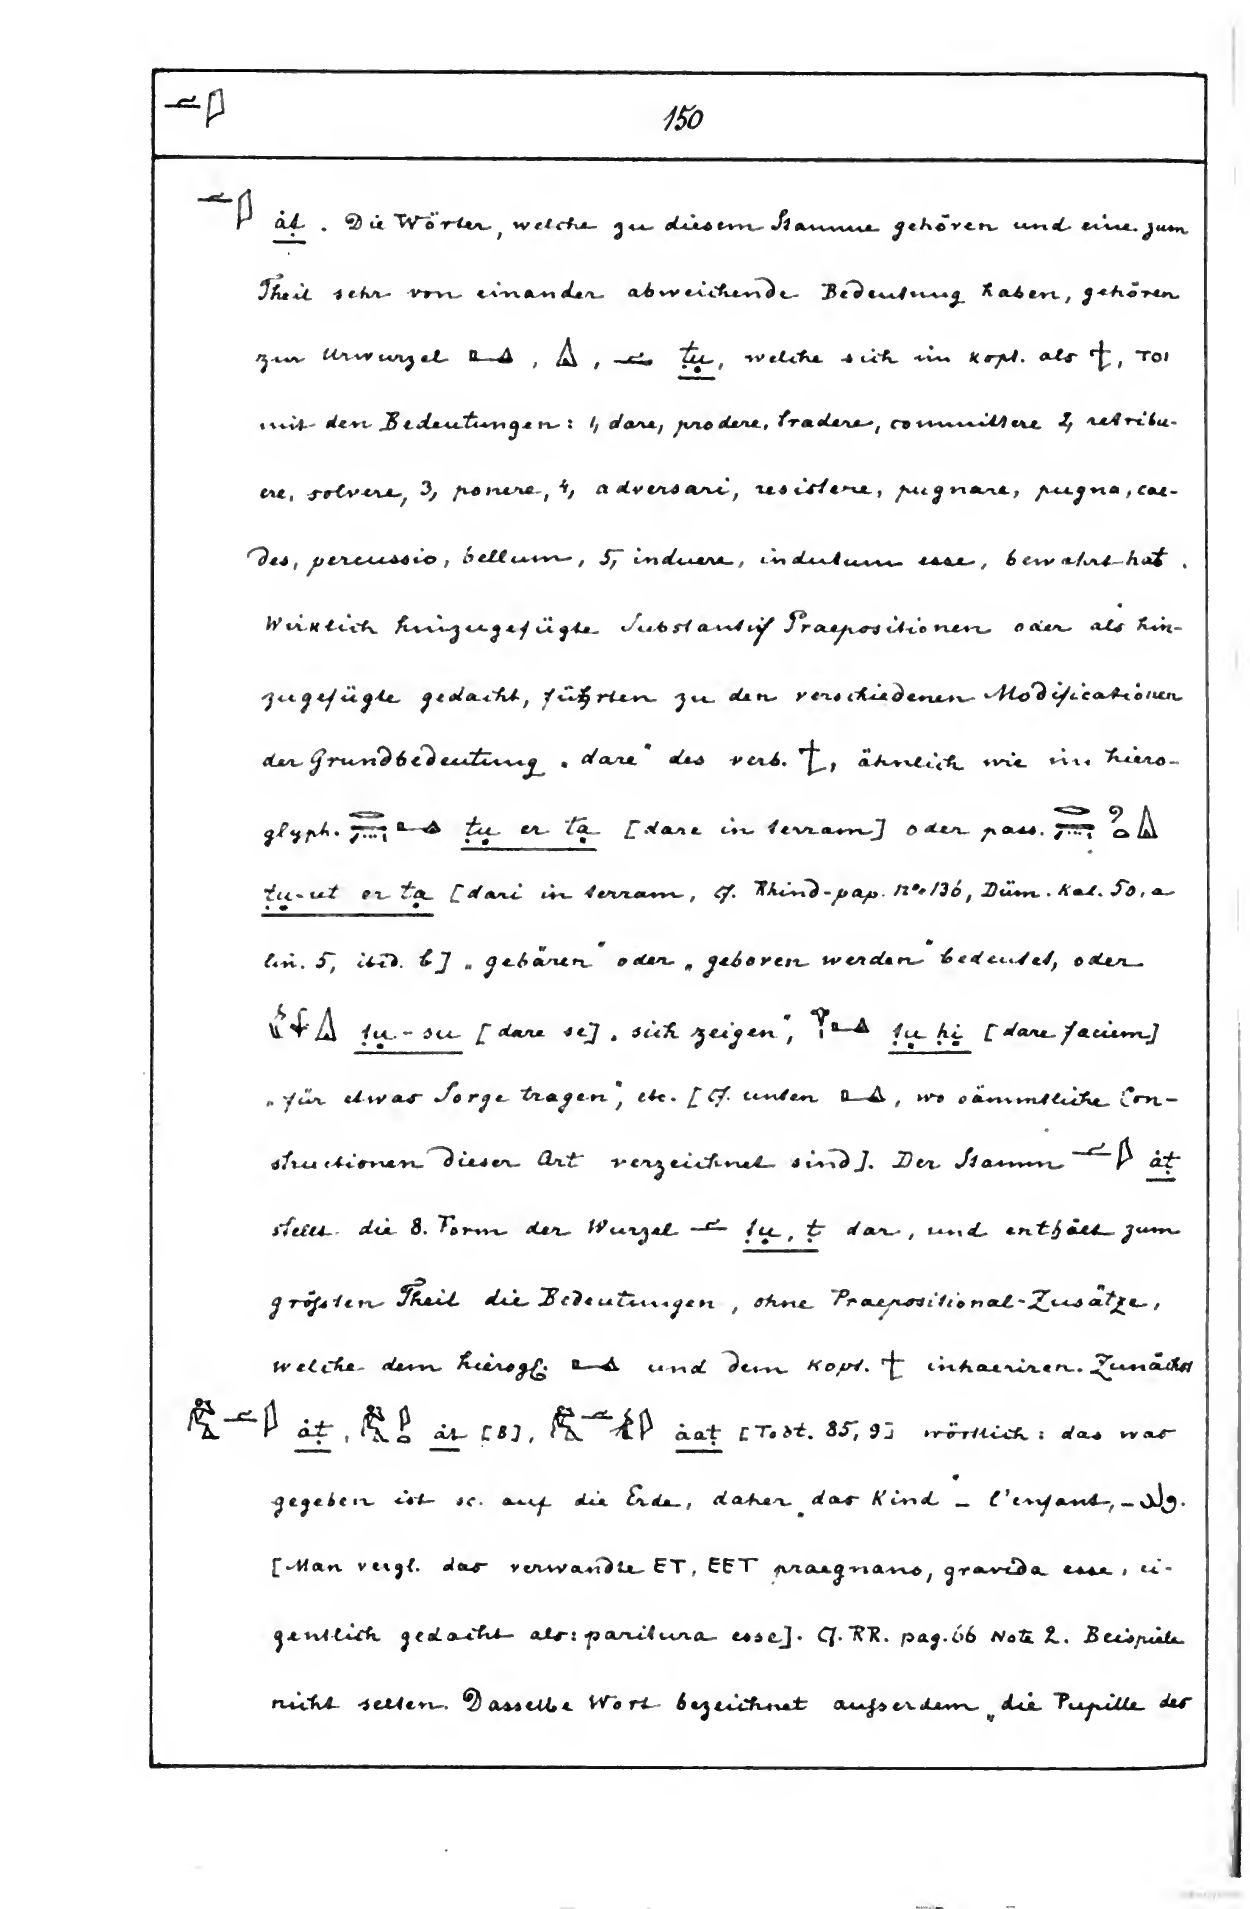 150
ȧṭ. Die Wörter, welche zu diesem Stamme gehören und eine zum
Theil sehr von einander abweichende Bedeutung haben, gehören
zur Urwurzel , , ṭụ, welche sich im kopt. als ϯ, ⲧⲟⲓ
mit den Bedeutungen: 1, dare, prodere, tradere, committere 2, retribu-
ere, solvere, 3, ponere, 4, adversari, resistere, pugnare, pugna, cae-
des, percussio, bellum, 5, induere, indutum esse, bewahrt hat.
Wirklich hinzugefügte Substantiv Praepositionen oder als hin-
zugefügte gedacht, führten zu den verschiedenen Modificationen
der Grundbedeutung „dare“ des verb. ϯ, ähnlich wie im hiero-
glyph. ṭụ er tạ [dare in terram] oder pass.
ṭụ-ut er tạ [dari in terram, cf. Rhind-pap. no 136, Düm. Kal. 50, a
lin. 5, ibid. b] „gebären“ oder „geboren werden“ bedeutet, oder
ṭụ-su [dare se] „sich zeigen“, ṭụ ḥị [dare faciem]
„für etwas Sorge tragen“, etc. [cf. unten , wo sämmtliche Con-
structionen dieser Art verzeichnet sind]. Der Stamm ȧṭ
stellt die 8. Form der Wurzel ṭụ, ṭ dar, und enthält zum
größten Theil die Bedeutungen, ohne Praepositional-Zusätze,
welche dem hierogl. und dem kopt. ϯ inhaeriren. Zunächst
ȧṭ, ȧt [B], ȧaṭ [Todt. 85, 9] wörtlich: das was
gegeben ist sc. auf die Erde, daher „das Kind“ – l'enfant, – ولد.
[Man vergl. das verwandte ET, EET praegnans, gravida esse, ei-
gentlich gedacht als: paritura esse]. Cf. RR. pag. 66 Note 2. Beispiele
nicht selten. Dasselbe Wort bezeichnet außerdem „die Pupille des